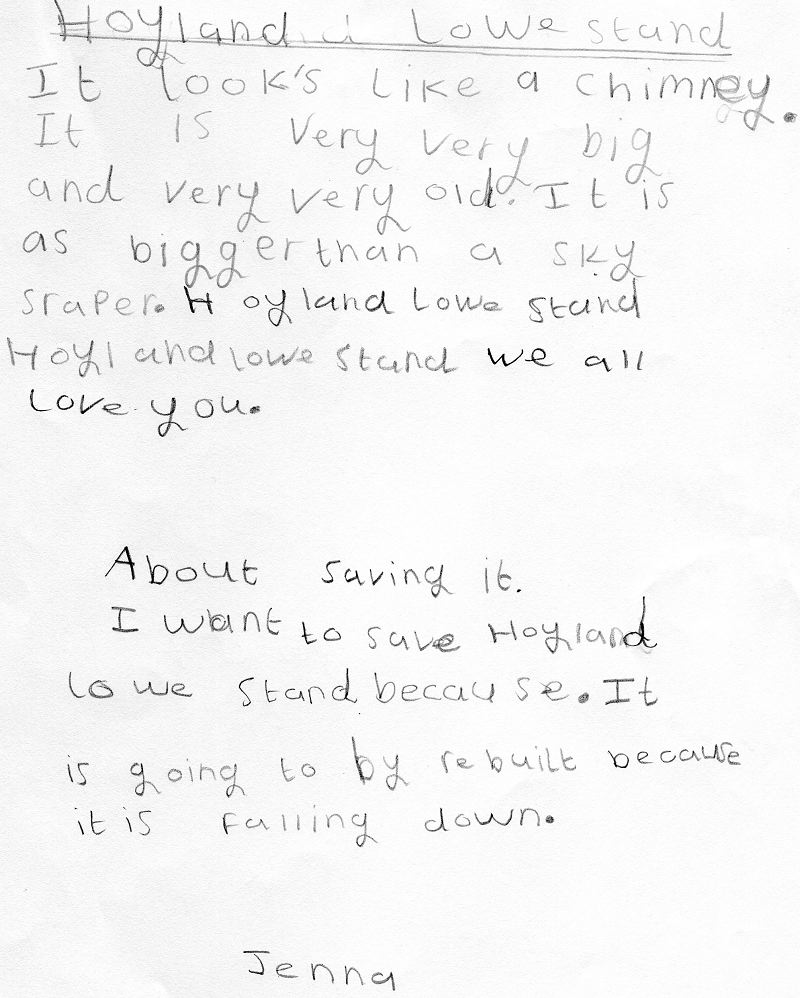 Hoyland Lowe stand
It look's like a chimney.
It is very very big
and very very old. It is
as bigger than a sky
sraper. Hoyland Lowe stand
Hoyland lowe stand we all
Love you.
About saving it.
I want to save Hoyland
lowe stand because. It
is going to by rebuilt because
it is falling down.
Jenna